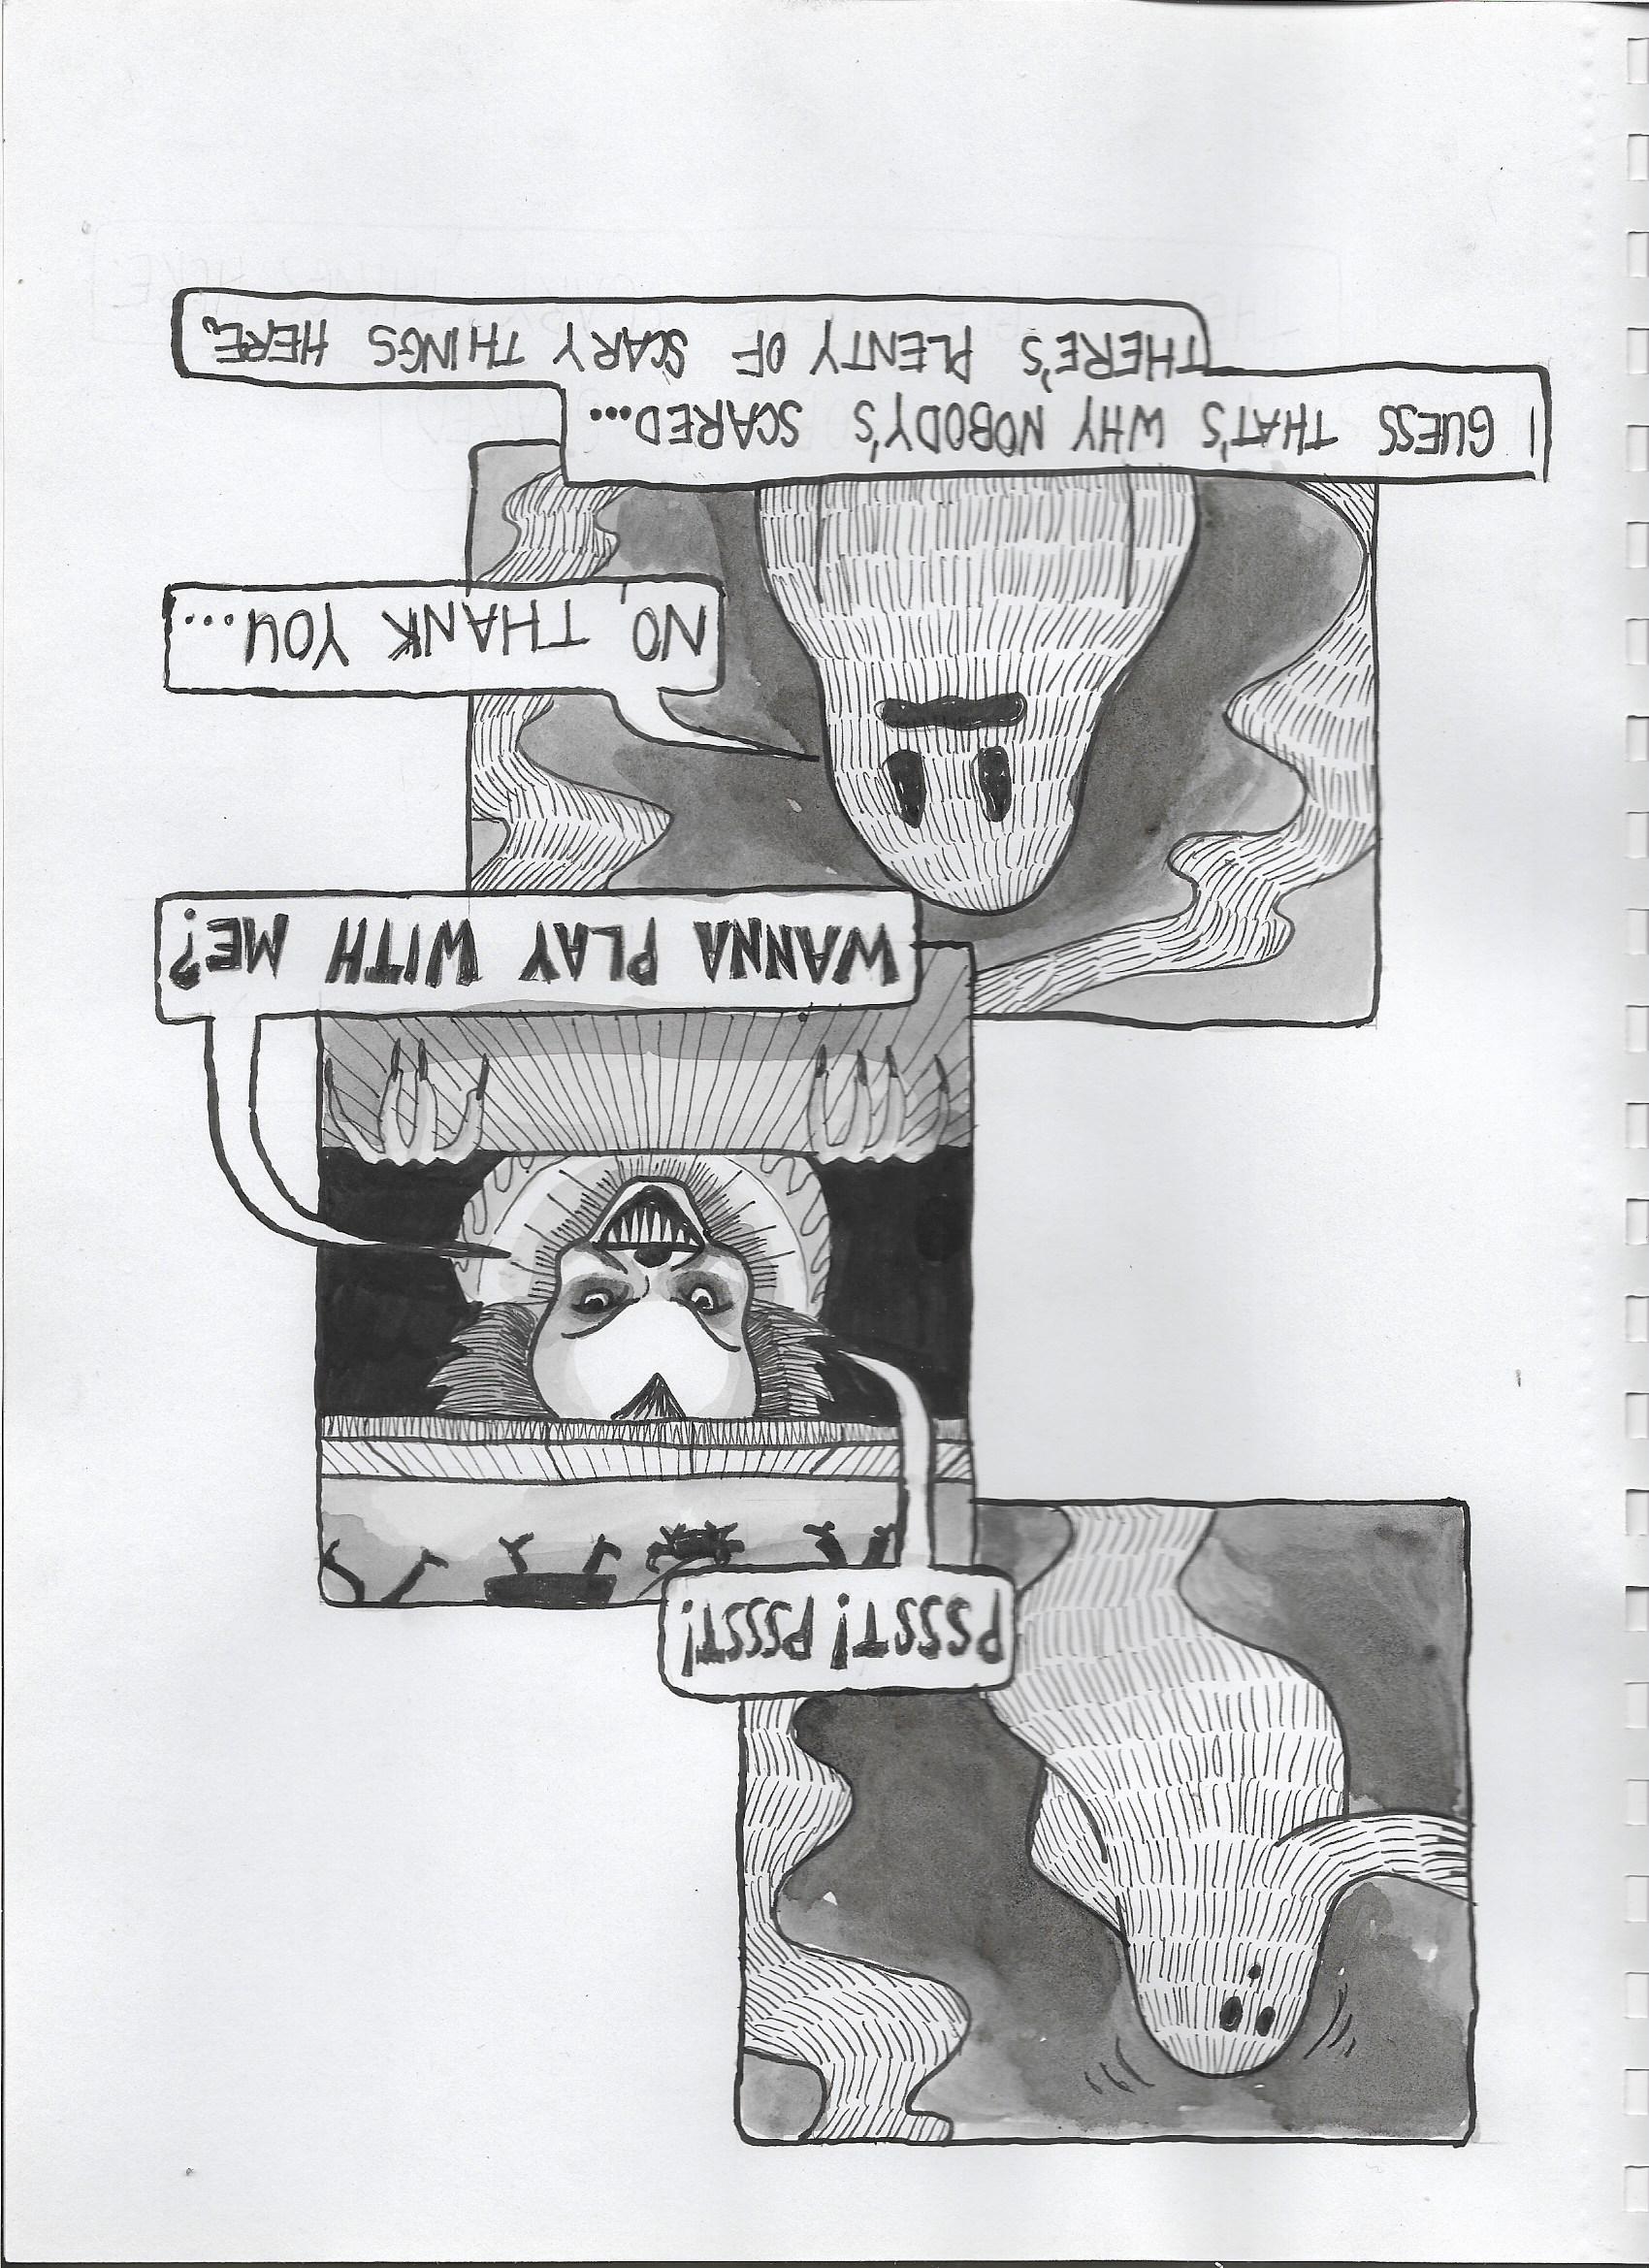 PSSST! PSSST!
WANNA PLAY WITH ME?
NO, THANK YOU...
I GUESS THAT'S WHY NOBODY'S SCARED...
THERE'S PLENTY OF SCARY THINGS HERE.